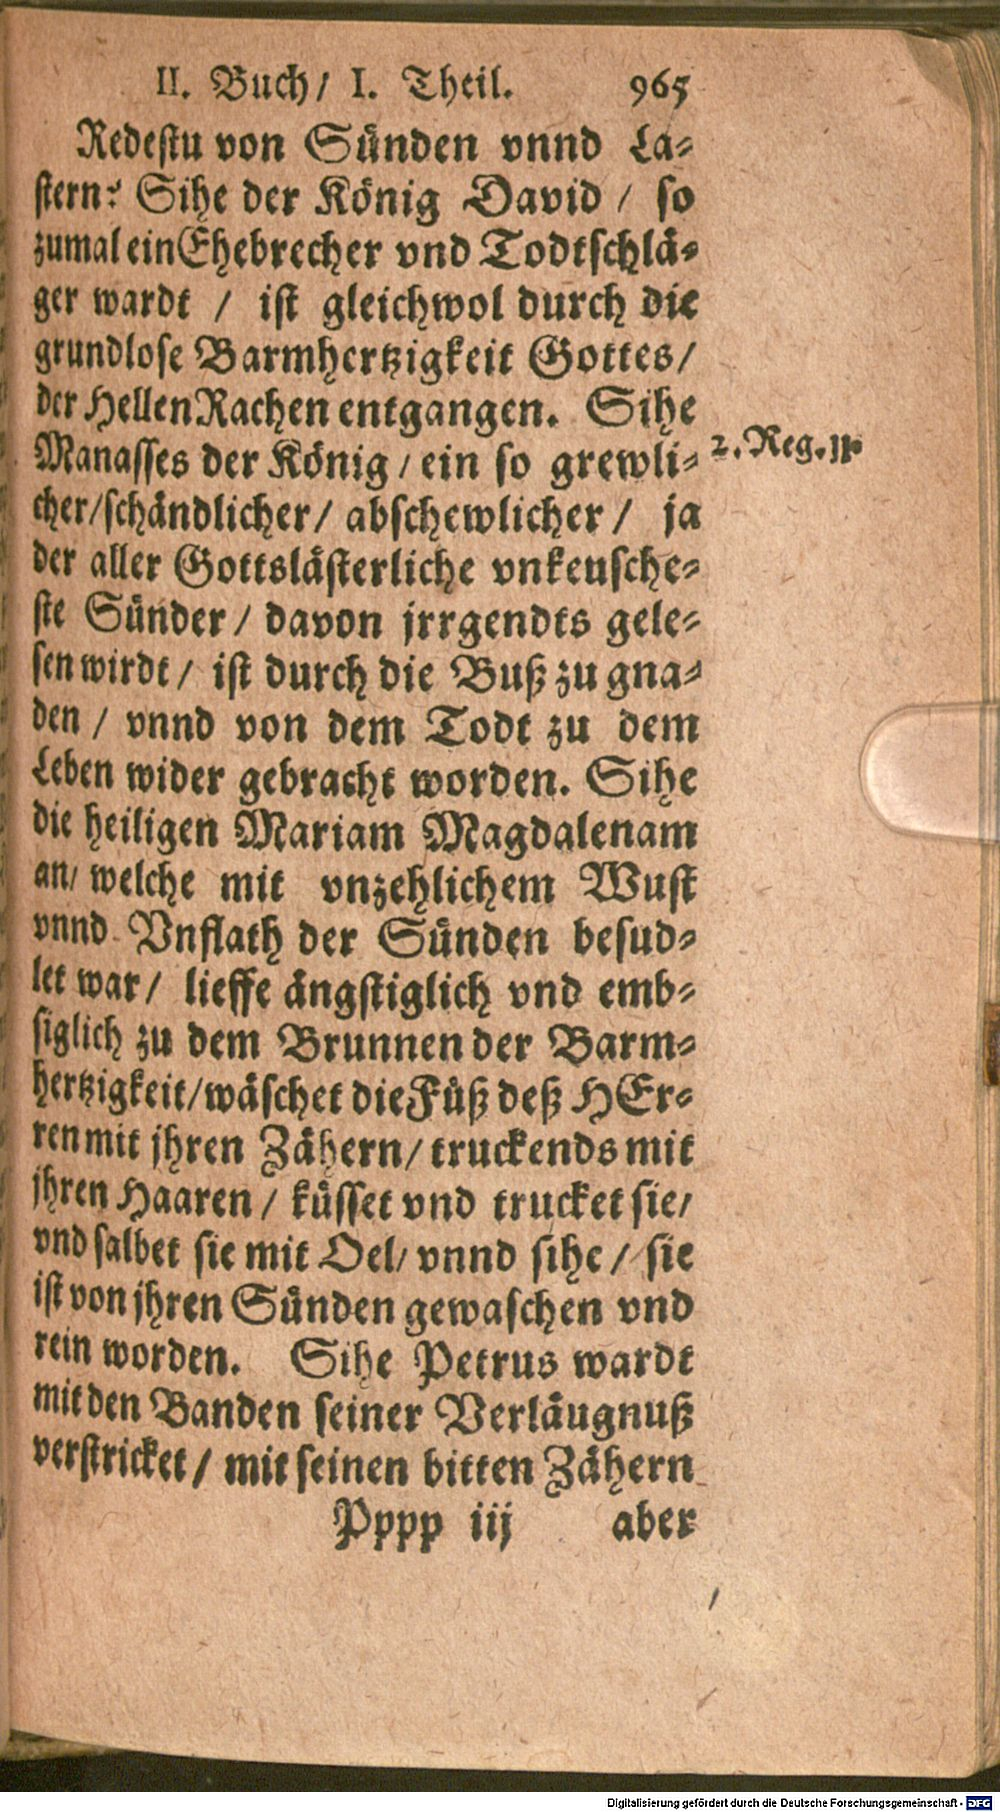 II. Buch/ I. Theil. 965
Redestu von Sünden vnnd La-
stern? Sihe der König David / so
zumal ein Ehebrecher vnd Todtschlä-
ger wardt / ist gleichwol durch die
grundlose Barmhertzigkeit Gottes/
der Hellen Rachen entgangen. Sihe
Manasses der König / ein so grewli-
2. Reg.
cher/schändlicher/ abschewlicher/ ja
der aller Gottslästerliche vnkeusche-
ste Sünder / davon jrrgendts gele-
sen wirdt / ist durch die Buß zu gna-
den / vnnd von dem Todt zu dem
Leben wider gebracht worden. Sihe
die heiligen Mariam Magdalenam
an/ welche mit vnzehlichem Wust
vnnd Vnflath der Sünden besud-
let war / lieffe ängstiglich vnd emb-
siglich zu dem Brunnen der Barm-
hertzigkeit/wäschet die Füß deß HEr-
ren mit jhren Zähern/ truckends mit
jhren Haaren / küsset vnd trucket sie/
vnd salbet sie mit Oel/ vnnd sihe / sie
ist von jhren Sünden gewaschen vnd
rein worden. Sihe Petrus wardt
mit den Banden seiner Verläugnuß
verstricket / mit seinen bitten Zähern
Pppp iij aber
Digitalisierung gefördert durch die Deutsche Forschungsgemeinschaft - DFG